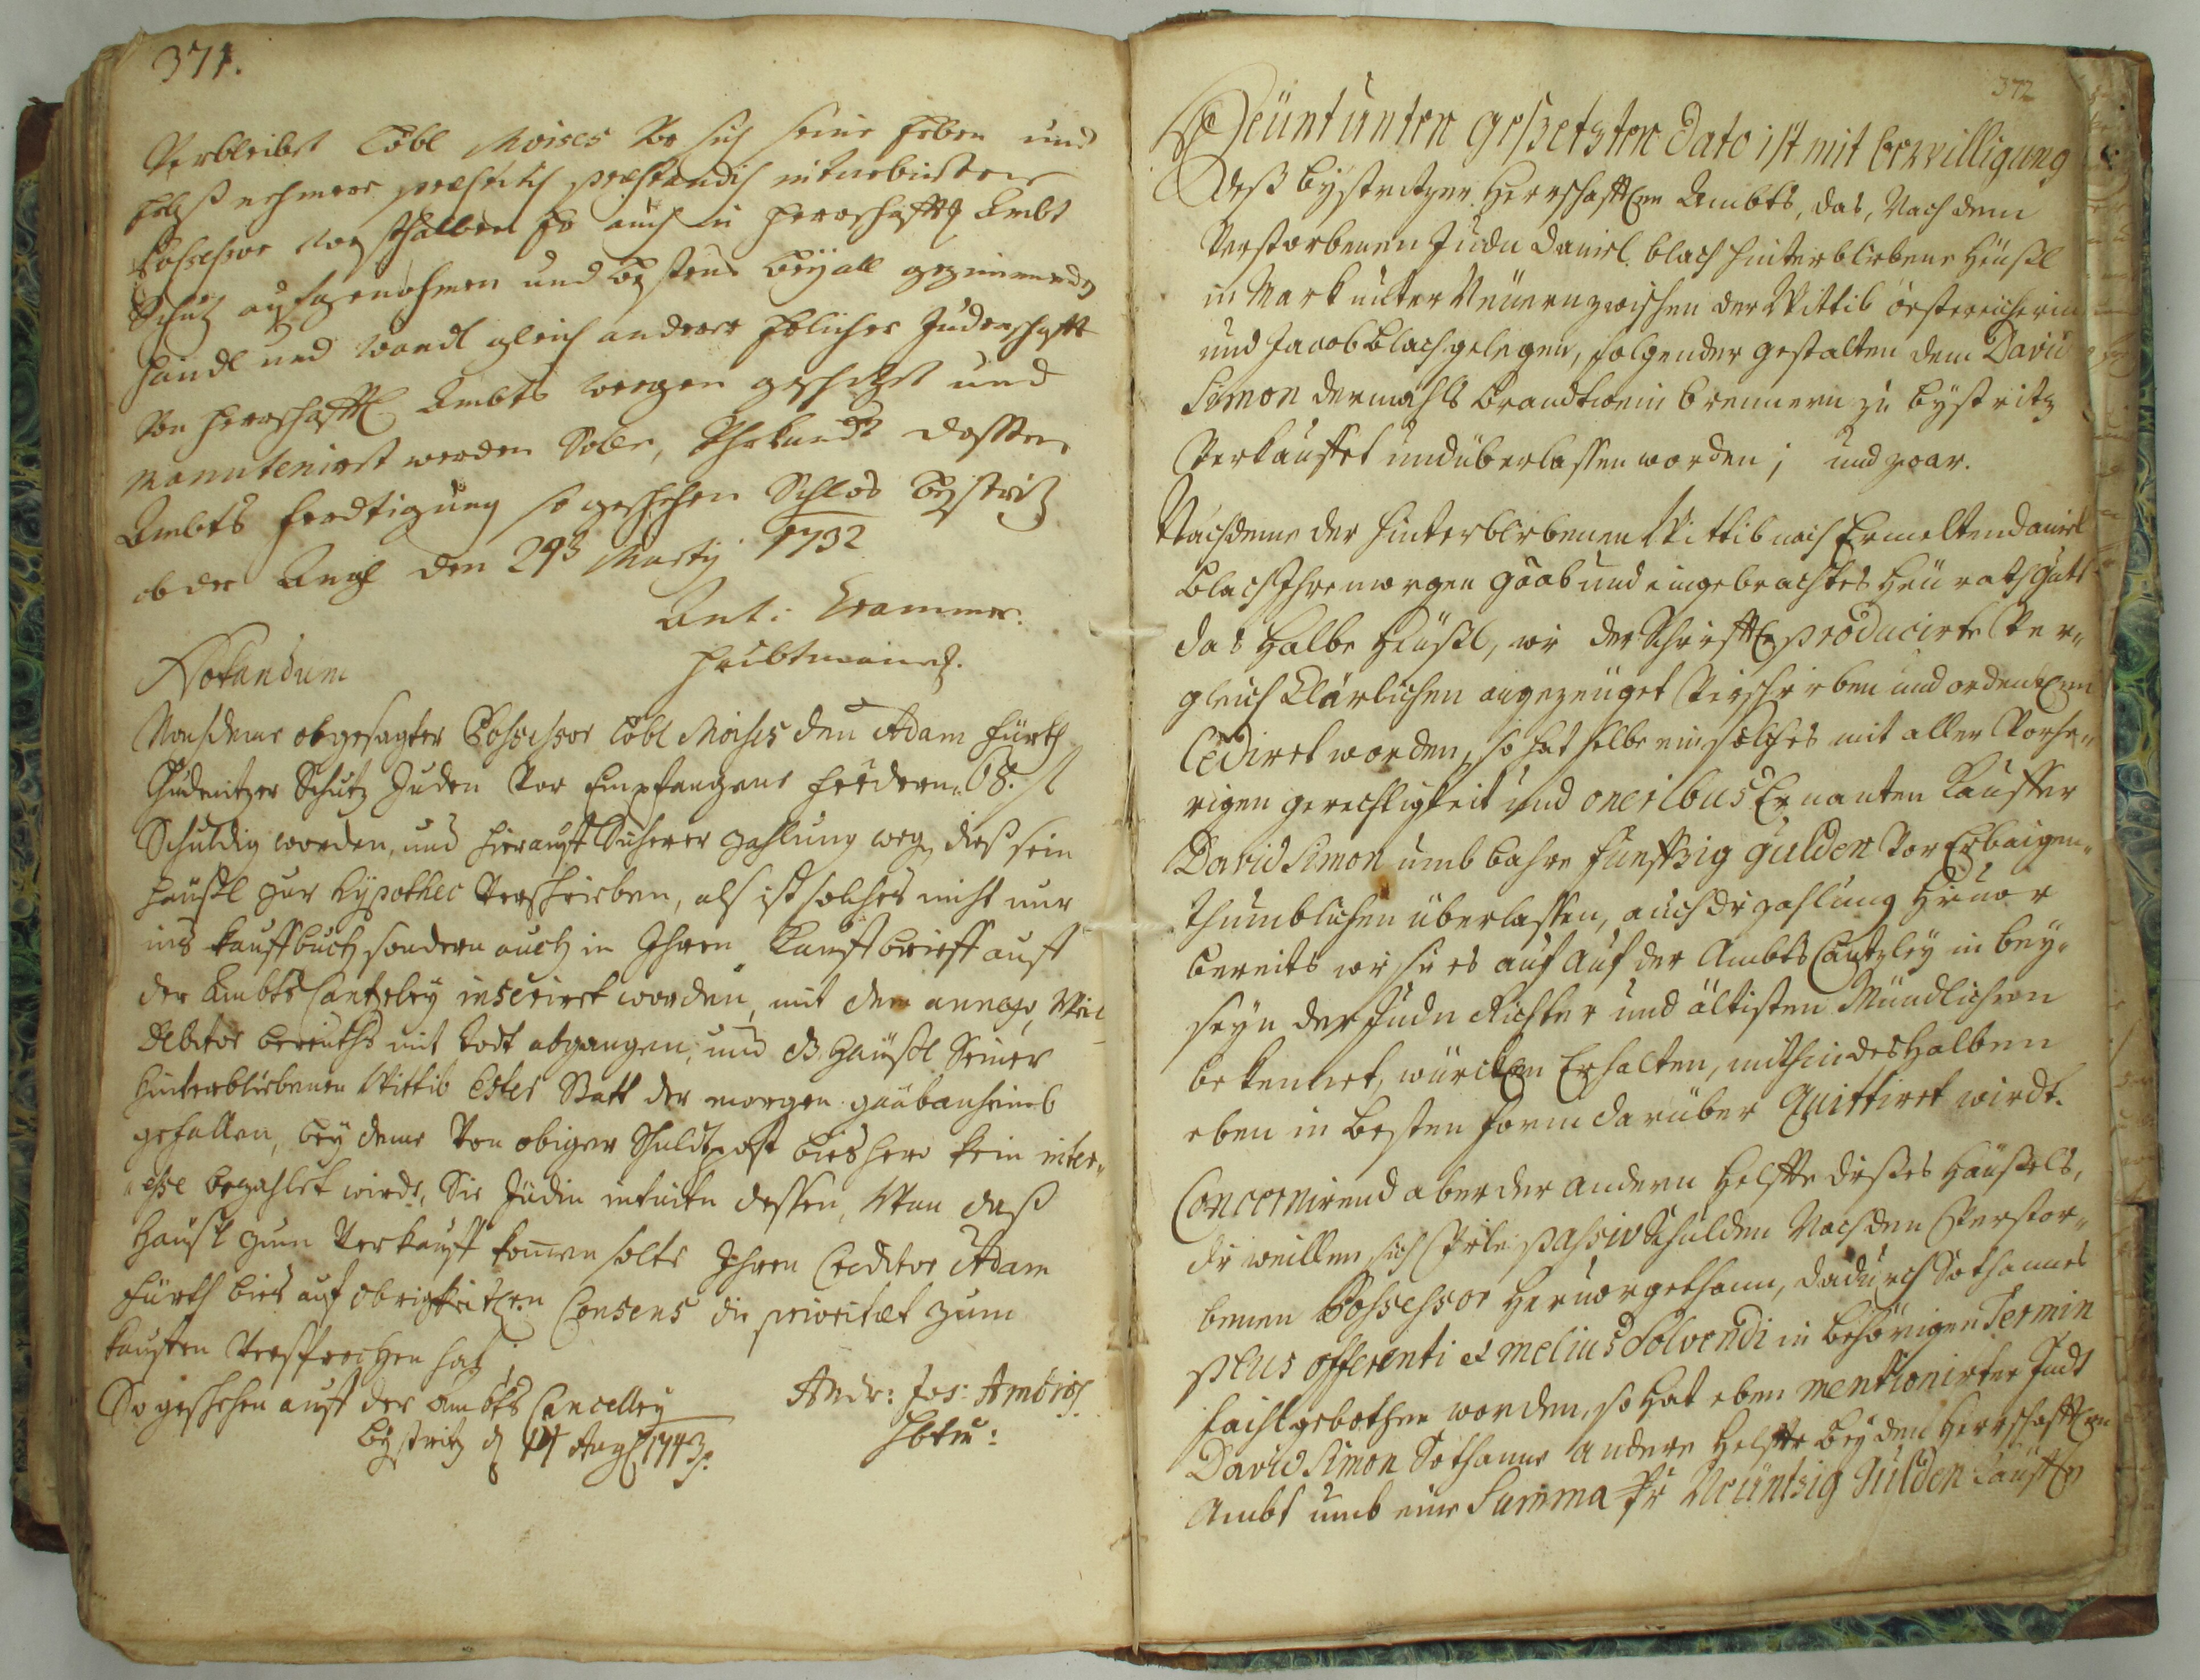 371.
Verbleibet Löbl Moises Vor sich seine Erben und
Erbß nehmere praestitis praestandis ruhiebiester
Possessor deßhalben Er auch in herrschafftl Ambt
Schutz aufgenohmen und bestens bey all gezimmenden
Handl und Wandl gleich anderer Ehrlicher Judenschafft
Von herrschafftl Ambts weegen geschützt und
manuteniret werden Solle, Uhrkundt dessen
Ambts Ferdtigung so geschehen Schlos Bystritz
ob der Angl den 29t Marty 1732
Ant: Crammer
Haubtmann
Notandum
Nachdeme obgesagter Possessor Löbl Moises den Adam Fürth
Chudenitzer Schutz Juden Vor Empfangene Feedern 68. fl
Schuldig worden, und hierauff Sicherer zahlung weg. dieß sein
Häusl zur Hypothec Verschrieben, als ist solches nicht nur
ins Kauffbuch sondern auch in Ihren Kauffbrieff auff
der Ambts Cantzeley inseriret worden, mit dem annexo, Weil
debitor bereiths mit Todt abgangen, und dz Häusl Seiner
hinterbliebenen Wittib Ester Statt der morgen gaab anheimb
gefallen, bey deme Von obiger Schuldtpost bis hero kein inter-
esse bezahlet wirdt, Sie Jüdin intuitu dessen, Wan daß
Häusl zum Verkauff komen solte Ihren Creditor Adam
Fürth bies auf obrigkeitlen Consens die prioritaet zum
kauffen Versprochen hat
So geschehen auff der Ambts Cancelley
Bystritz d 14 Aug 1743
Andr: Jos: Ambros
Hbtm:
372
Heünt unten gesetzten dato ist mit bewilligung
deß Bystritzer Herrschafftlen Ambts, das, Nach dem
Verstorbenen Juden Daniel Blach hinterbliebene Heüßl
in Mark unter Neüern zwischen der Wittib öestereicherin
und Jacob Blach gelegen, folgender gestalten dem David
Simon dermahls Brandtwein brennern zu Bystritz
Verkauffet und überlassen worden; und zwar.
Nachdeme der hinterbliebenen Wittib nach Ermelten Daniel
Blach Ihre morgen Gaab und eingebrachtes Heüraths Gutt
das Halbe Heüßl, wie der Schrifftl producirte Ver-
gleich Klärlichen angezeüget Verschrieben und ordentlen
Cediret worden, so hat selbe ein solches mit aller Vorhe-
rigen gerechtigkeit und oneribus Ernanten Kauffer
David Simon umb bahre Funffzig gulden Vor Erbaigen-
thumblichen überlassen, auch die zahlung Hievor
bereits wie sie es auf auf der Ambts Cantzley in bey-
seyn der Juden Richter und ältisten Mündlichen
bekennet, würcklen Erhalten, mithin deshalben
eben in besten Form darüber Quittiret wirdt.
Concernirend aber der andern Helffte dießes Häußels,
die weillen sich Viele passiv schulden Nach den Verstor-
benen Possessor Hervorgethann, dadurch Sothannes
plus offerenti et melius Solvendi in behörigen Termin
failgebothen worden, so hat eben mentionirter Judt
David Simon Sothanne andere Helffte bey den Herrschafftlen
Ambt umb eine Summa pr Neüntzig Gulden Kaufflen